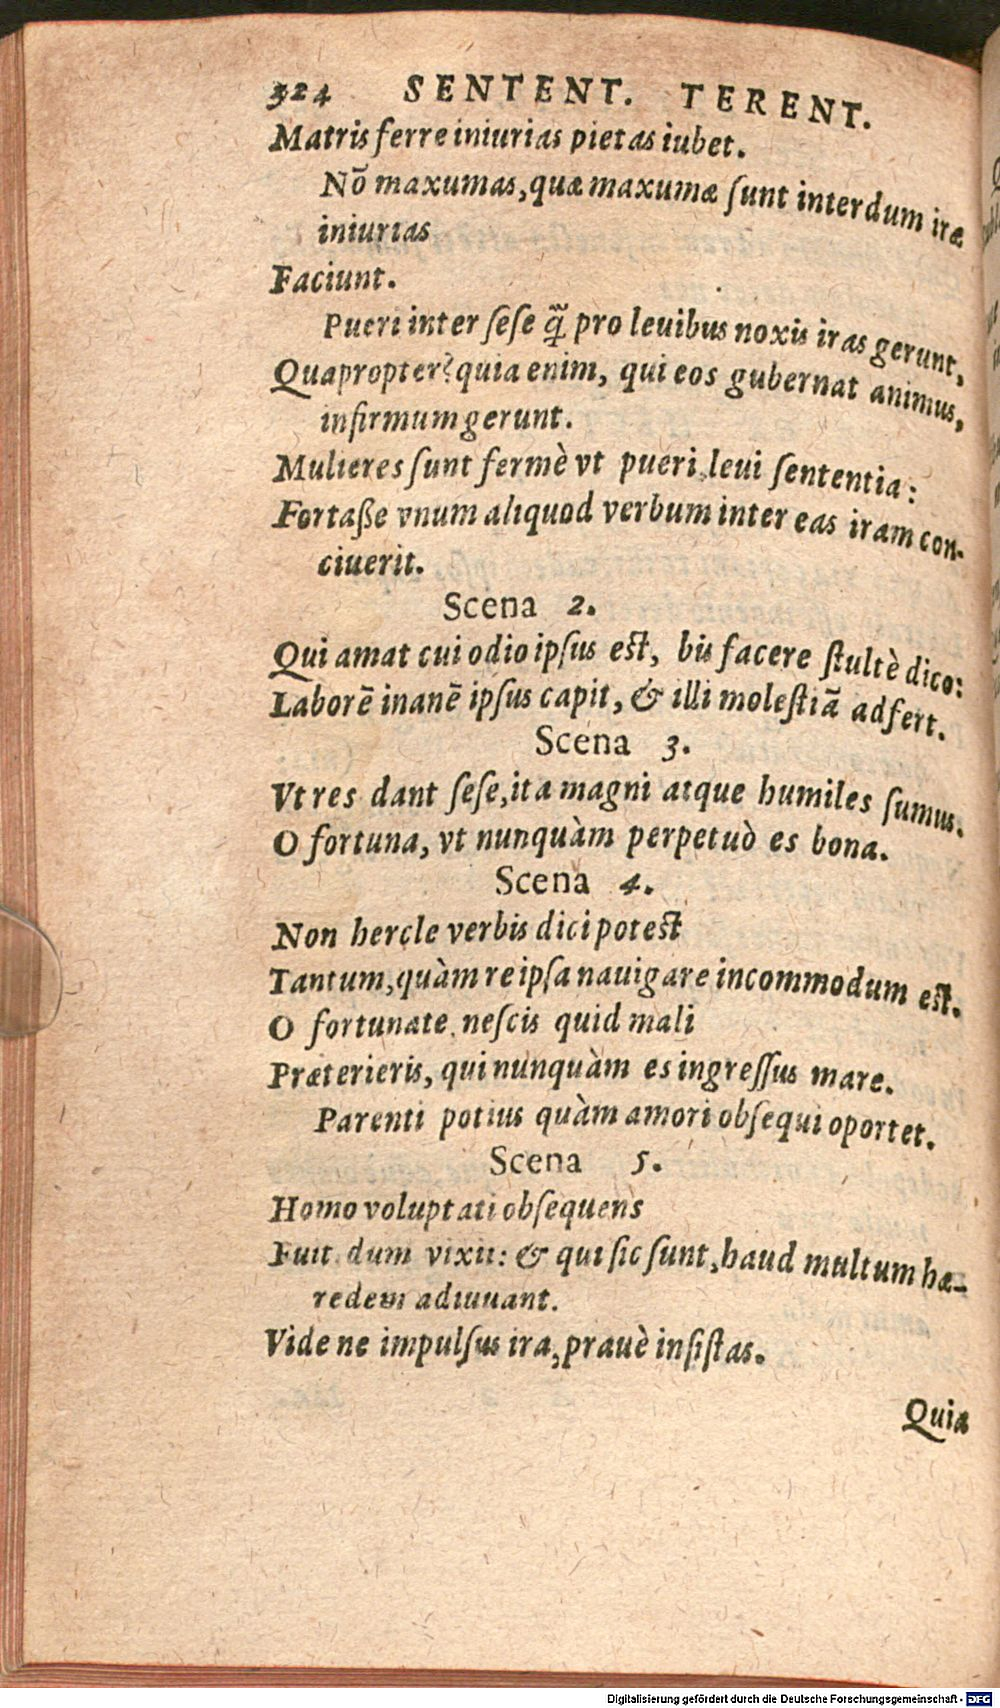 324 SENTENT. TERENT.
Matris ferre iniurias pietas iubet.
Nō maxumas, quæ maxumæ ſunt interdum iræ
iniurias
Faciunt.
Pueri inter ſeſe q̃ pro leuibus noxis iras gerunt,
Quapropter? quia enim, qui eos gubernat animus,
infirmum gerunt.
Mulieres ſunt fermè vt pueri leui ſententia:
Fortaße vnum aliquod verbum inter eas iram con-
ciuerit.
Scena 2.
Qui amat cui odio ipſus eſt, bis facere ſtultè dico:
Laborē inanē ipſus capit, & illi moleſtiā adfert.
Scena 3.
Vt res dant ſeſe, ita magni atque humiles ſumus.
O fortuna, vt nunquàm perpetuò es bona.
Scena 4.
Non hercle verbis dici poteſt
Tantum, quàm re ipſa nauigare incommodum eſt.
O fortunate neſcis quid mali
Præterieris, qui nunquàm es ingreſſus mare.
Parenti potius quàm amori obſequi oportet.
Scena 5.
Homo voluptati obſequens
Fuit dum vixit: & qui ſic ſunt, haud multum hæ-
redem adiuuant.
Vide ne impulſus ira, prauè inſiſtas.
Quia
Digitalisierung gefördert durch die Deutsche Forschungsgemeinschaft - DFG